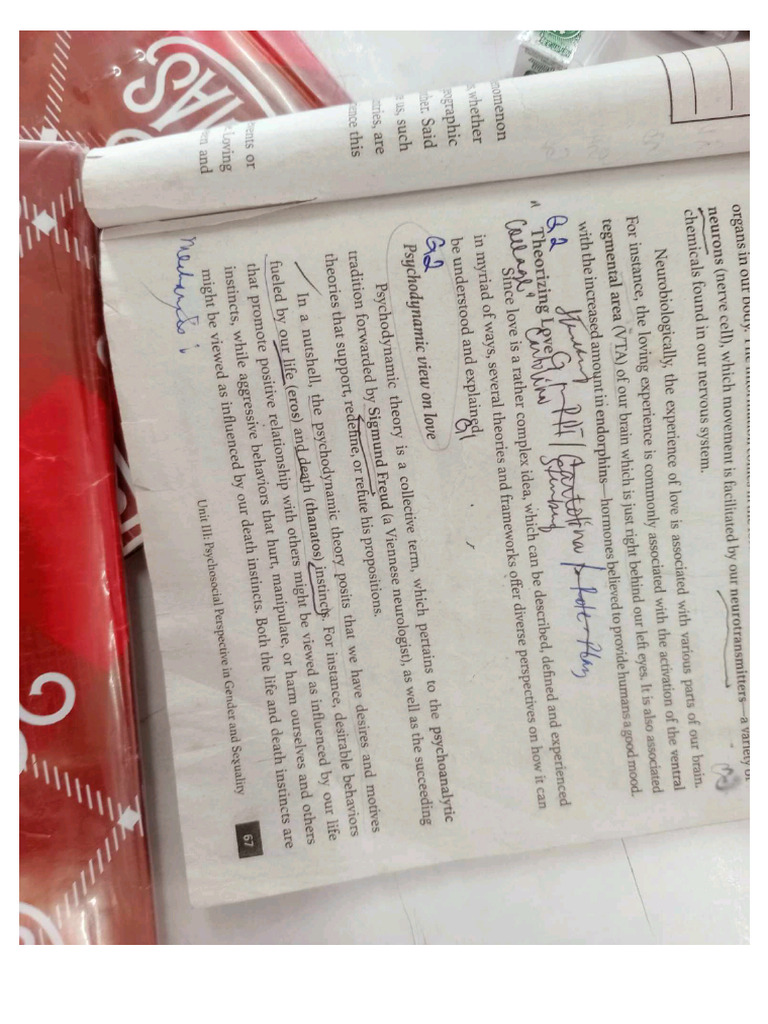 organs in our body. The
neurons (nerve cell), which movement is facilitated by our neurotransmitters—a variety of
chemicals found in our nervous system.
Neurobiologically, the experience of love is associated with various parts of our brain.
For instance, the loving experience is commonly associated with the activation of the ventral
tegmental area (VTA) of our brain which is just right behind our left eyes. It is also associated
with the increased amount in endorphins—hormones believed to provide humans a good mood.
G2
Theorizing Love
Since love is a rather complex idea, which can be described, defined and experienced
in myriad of ways, several theories and frameworks offer diverse perspectives on how it can
be understood and explained.
G2
Psychodynamic view on love
Psychodynamic theory is a collective term, which pertains to the psychoanalytic
tradition forwarded by Sigmund Freud (a Viennese neurologist), as well as the succeeding
theories that support, redefine, or refute his propositions.
In a nutshell, the psychodynamic theory posits that we have desires and motives
fueled by our life (eros) and death (thanatos) instincts. For instance, desirable behaviors
that promote positive relationship with others might be viewed as influenced by our life
instincts, while aggressive behaviors that hurt, manipulate, or harm ourselves and others
might be viewed as influenced by our death instincts. Both the life and death instincts are
Unit III: Psychosocial Perspective in Gender and Sexuality
67
nomenon
whether
eographic
her. Said
us, such
ries, are
ence this
ents or
Loving
en and
MAS